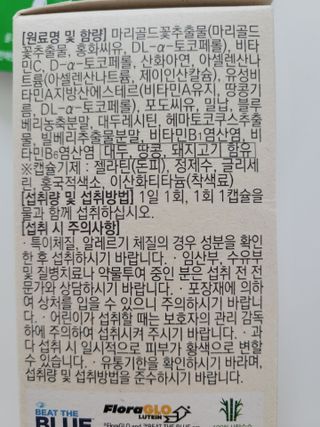 [원료명 및 함량] 마리골드꽃추출물(마리골드
꽃추출물, 홍화씨유, DL-α-토코페롤), 비타
민C, D-α-토코페롤, 산화아연, 아셀렌산나
트륨(아셀렌산나트륨, 제이인산칼슘), 유성비
타민A지방산에스테르(비타민A유지, 땅콩기
름, DL-α-토코페롤), 포도씨유, 밀납, 블루
베리농축분말, 대두레시틴, 헤마토코쿠스추출
물, 빌베리추출물분말, 비타민B₁염산염, 비
타민B₆염산염 대두, 땅콩, 돼지고기 함유
※캡슐기제 : 젤라틴(돈피), 정제수, 글리세
린, 홍국적색소, 이산화티타늄(착색료)
[섭취량 및 섭취방법] 1일 1회, 1회 1캡슐을
물과 함께 섭취하십시오.
[섭취 시 주의사항]
· 특이체질, 알레르기 체질의 경우 성분을 확인
한 후 섭취하시기 바랍니다. · 임산부, 수유부
및 질병치료나 약물투여 중인 분은 섭취 전 전
문가와 상담하시기 바랍니다. · 포장재에 의하
여 상처를 입을 수 있으니 주의하시기 바랍니
다. · 어린이가 섭취할 때는 보호자의 관리 감독
하에 주의하여 섭취시켜 주시기 바랍니다. · 과
다 섭취 시 일시적으로 피부가 황색으로 변할
수 있습니다. · 유통기한을 확인하시기 바라며,
섭취량 및 섭취방법을 준수하시기 바랍니다.
BEAT THE
BLUE
FloraGLO
LUTEIN